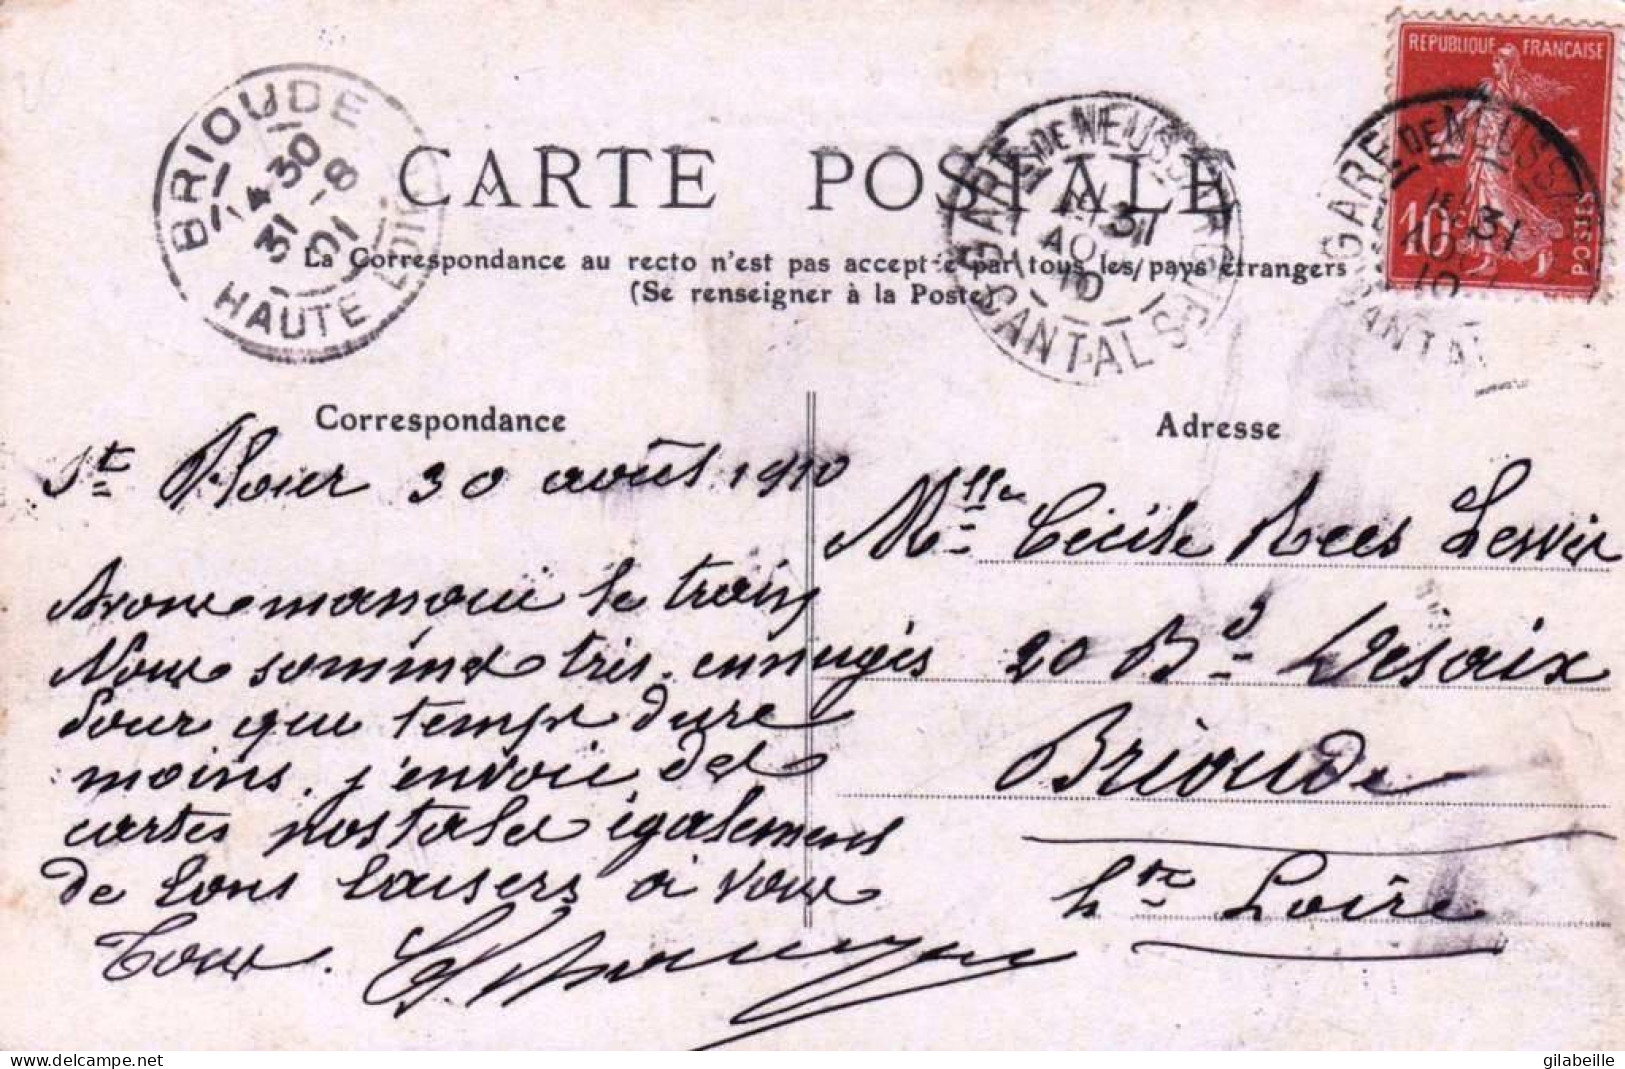 BRIOUDE
14 30
31 -8
10
HAUTE LOIRE
GARE DE NEUSSARGUES
31
AOU
10
CANTAL
GARE DE NEUSSA
31
10
CANTAL
REPUBLIQUE FRANÇAISE
10c
POSTES
CARTE POSTALE
La Correspondance au recto n'est pas acceptée par tous les pays étrangers
(Se renseigner à la Poste)
Correspondance
St Flour 30 août 1910
Avons manqué le train
Nous sommes très ennuyés
Pour que temps dure
moins, j'envoie des
cartes postales également
de bons baisers à vous
Tous.
Adresse
Mlle Cécile
20 Bd Desaix
Brioude
Hte Loire
delcampe.net
gilabeille